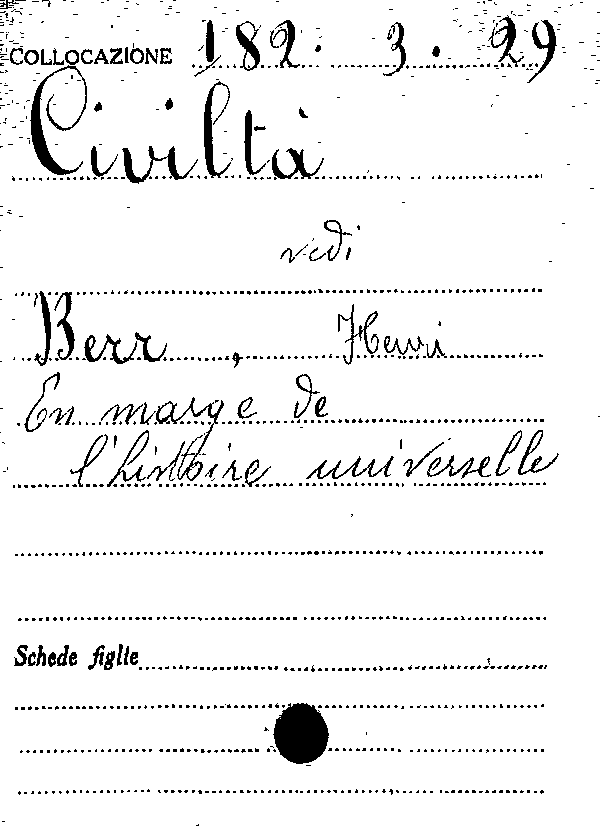 COLLOCAZIONE 182. 3. 29
Civiltà
vedi
Berr, Henri
En marge de
l'histoire universelle
Schede figlie